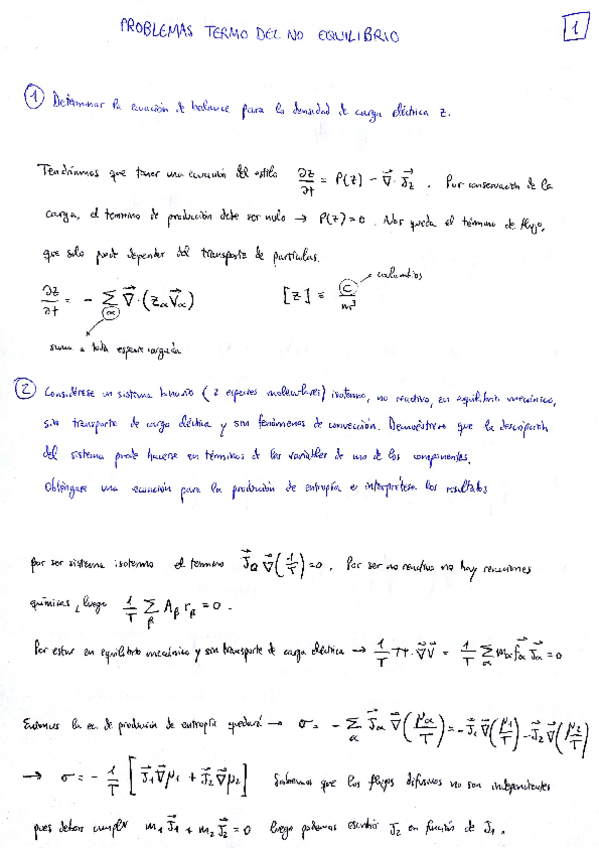 PROBLEMAS TERMO DEL NO EQUILIBRIO
1
① Determinar la ecuación de balance para la densidad de carga eléctrica z.
Tendríamos que tener una ecuación del estilo ∂z/∂t = P(z) - ∇⃗·J⃗_z . Por conservación de la
carga, el termino de producción debe ser nulo → P(z)=0 . Nos queda el término de flujo,
que solo puede depender del transporte de partículas.
culombios
∂z/∂t = - ∑_α ∇⃗·(z_α V⃗_α) [z] ≡ C/m³
suma a toda especie cargada
② Considérese un sistema binario (2 especies moleculares) isotermo, no reactivo, en equilibrio mecánico,
sin transporte de carga eléctrica y sin fenómenos de convección. Demuéstrese que la descripción
del sistema puede hacerse en términos de las variables de uno de los componentes.
Obténgase una ecuación para la producción de entropía e interprétese los resultados
por ser sistema isotermo el termino J⃗_Q ∇⃗(1/T)=0 . Por ser no reactivo no hay reacciones
químicas, luego 1/T ∑_β A_β r_β = 0 .
Por estar en equilibrio mecánico y sin transporte de carga eléctrica → 1/T Π·∇⃗V⃗ = 1/T ∑_α m_α f⃗_α J⃗_α = 0
Entonces la ec. de producción de entropía quedará → σ = - ∑_α J⃗_α ∇⃗(μ_α/T) = - J⃗_1 ∇⃗(μ_1/T) - J⃗_2 ∇⃗(μ_2/T)
→ σ = - 1/T [ J⃗_1 ∇⃗μ_1 + J⃗_2 ∇⃗μ_2 ] Sabemos que los flujos difusivos no son independientes
pues deben cumplir m_1 J⃗_1 + m_2 J⃗_2 = 0 luego podemos escribir J_2 en función de J_1.